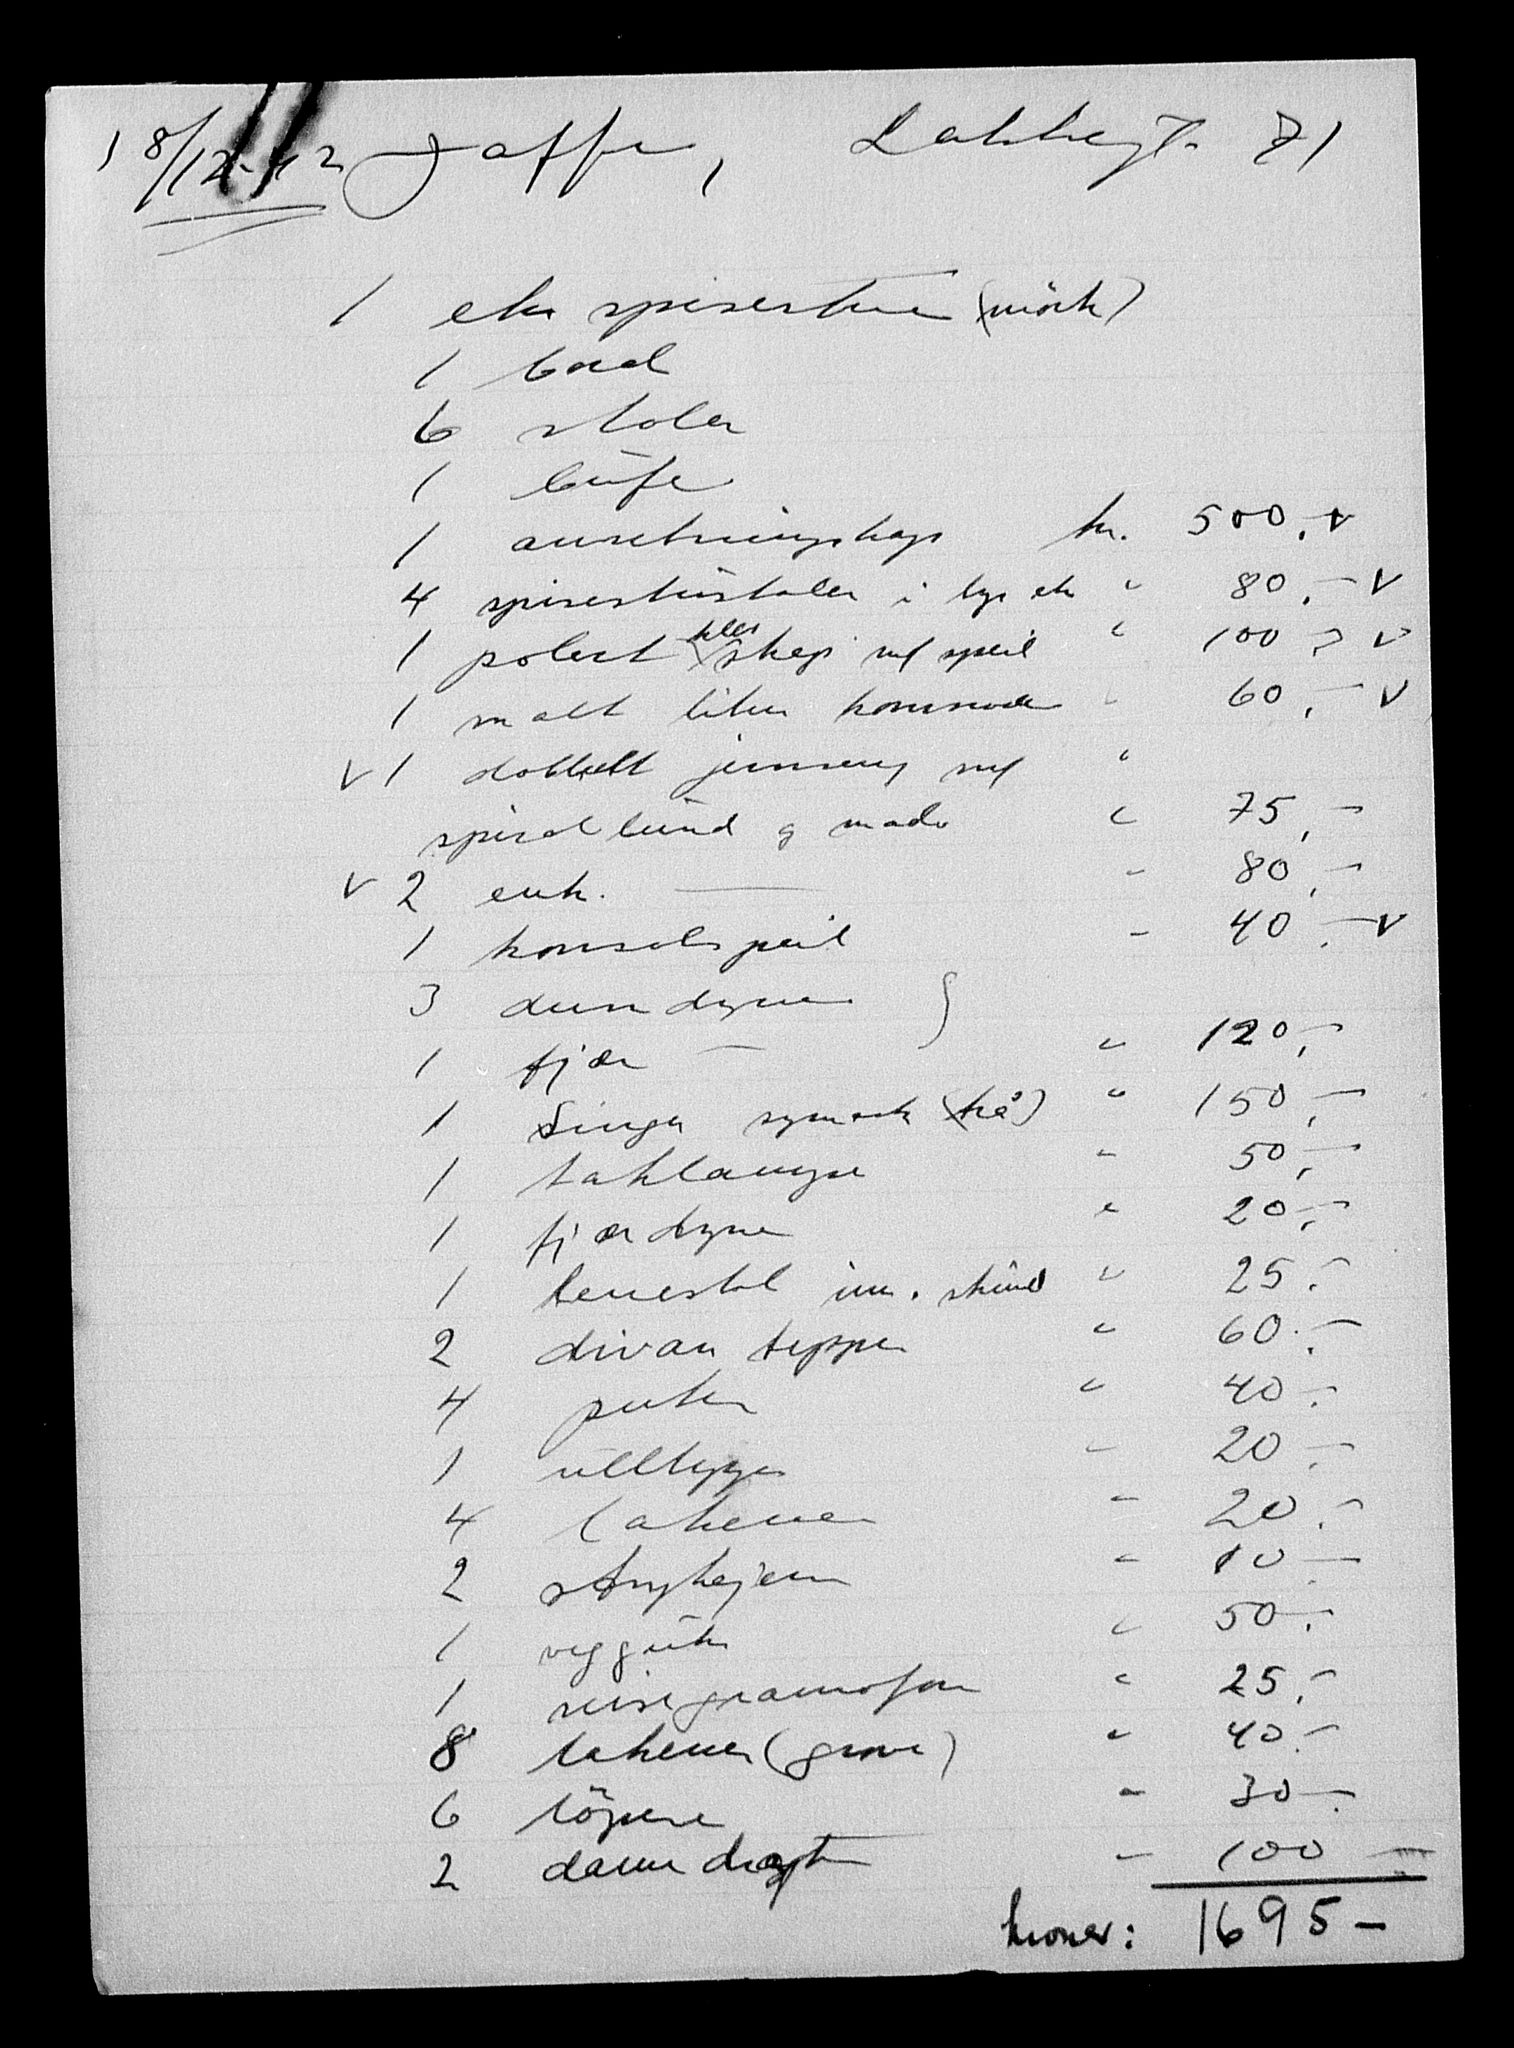 18/12-42 Jaffe, Lakkegt. 71
1 eke spisestue (mörk)
1 bord
6 stoler
1 büfe
1 anretningskap kr. 500,- v
4 spisestüstoler i lys ek " 80,- v
1 polert kles skap m/ speil " 100,- v
1 malt liten kommode " 60,- v
v 1 dobbelt jernseng m/ "
spiralbünd og madr " 75,-
v 2 enk. — - 80,-
1 konsolspeil - 40,- v
3 dundyner }
1 fjær — " 120,-
1 Singer symask (trå) " 150,-
1 taklampe - 50,-
1 fjærdyne " 20,-
1 lenestol im. skinn " 25,-
2 divan tepper " 60,-
4 puter " 40,-
1 ullteppe - 20,-
4 lakener - 20,-
2 strykejern - 10,-
1 veggür " 50,-
1 reisegramofon " 25,-
8 lakener (grove) " 40,-
6 löpere - 30,-
2 dame dragter - 100,-
kroner: 1695-